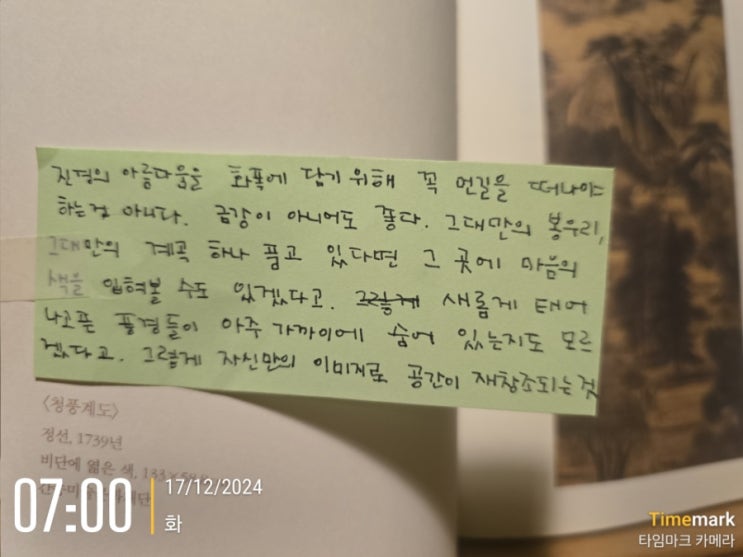 진경의 아름다움을 화폭에 담기 위해 꼭 먼길을 떠나야
하는건 아니다. 금강이 아니어도 좋다. 그대만의 봉우리,
그대만의 계곡 하나 품고 있다면 그 곳에 마음의
색을 입혀볼 수도 있겠다고. 그렇게 새롭게 태어
나고픈 풍경들이 아주 가까이에 숨어 있는지도 모르
겠다고. 그렇게 자신만의 이미지로 공간이 재창조되는 것
〈청풍계도〉
정선, 1739년
비단에 엷은 색, 133×
07:00
17/12/2024
화
Timemark
타임마크 카메라